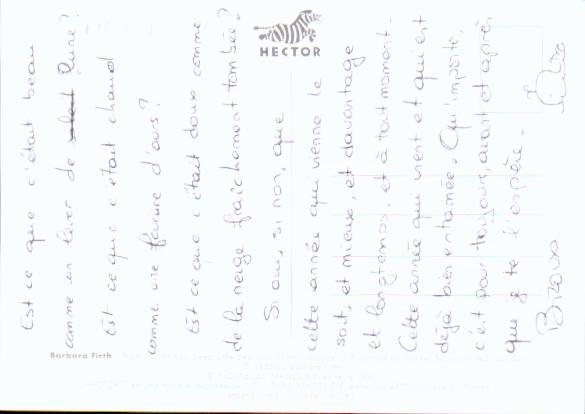 Est ce que c'était beau
comme un lever de lune?
Est ce que c'était chaud
comme une fourrure d'ours?
Est ce que c'était doux comme
de la neige fraîchement tombée?
Si oui, si non, que
cette année qui vienne le
soit, et mieux, et davantage
et longtemps, et à tout moment.
Cette année qui vient et qui est
déjà bien entamée. Qu'importe,
c'est pour toujours, avant et après,
que je te l'espère.
Bisous.
HECTOR
Barbara Firth